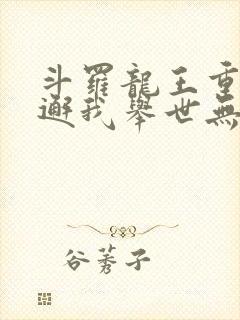 斗羅龍王重
邂我舉世無
谷莠子